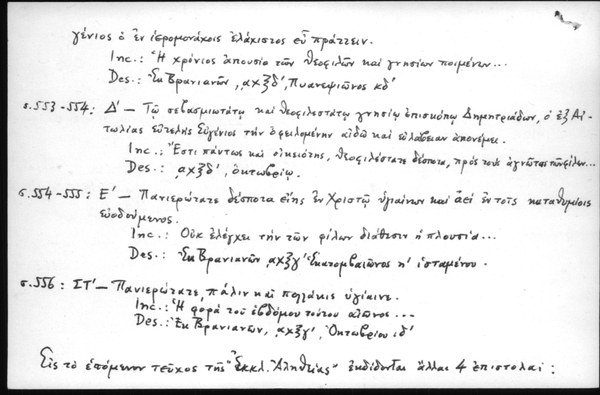 γένιος ὁ ἐν ἱερομονάχοις ἐλάχιστος εὖ πράττειν.
Inc.: Ἡ χρόνιος ἀπουσία τῶν θεοφιλῶν καὶ γνησίων ποιμένων...
Des.: Ἐκ Βρανιανῶν, ͵αχξδ', Πυανεψιῶνος κδ'
σ.553-554: Δ' – Τῷ σεβασμιωτάτῳ καὶ θεοφιλεστάτῳ γνησίῳ ἐπισκόπῳ Δημητριάδων, ὁ ἐξ Αἰ-
τωλίας εὐτελὴς Εὐγένιος τὴν ὀφειλομένην αἰδῶ καὶ εὐλάβειαν ἀπονέμει.
Inc.: Ἔστι πάντως καὶ οἰκειότης, θεοφιλέστατε δέσποτα, πρὸς τοὺς ἀγνῶτας
Des.: ͵αχξδ', ὀκτωβρίῳ.
σ.554-555: Ε' – Πανιερώτατε δέσποτα εἴης ἐν Χριστῷ ὑγιαίνων καὶ ἀεὶ ἐν τοῖς καταθυμίοις
εὐοδούμενος.
Inc.: Οὐκ ἐλέγχει τὴν τῶν φίλων διάθεσιν ἡ πλουσία...
Des.: Ἐκ Βρανιανῶν, ͵αχξγ' Ἑκατομβαιῶνος η' ἱσταμένου.
σ.556: ΣΤ' – Πανιερώτατε, πάλιν καὶ πολλάκις ὑγίαινε.
Inc.: Ἡ φορά τοῦ ἑβδόμου τούτου αἰῶνος...
Des.: Ἐκ Βρανιανῶν, ͵αχξγ', Ὀκτωβρίου ιδ'
Εἰς τὸ ἑπόμενον τεῦχος τῆς "Ἐκκλ. Ἀληθείας" ἐκδίδονται ἄλλαι 4 ἐπιστολαί: